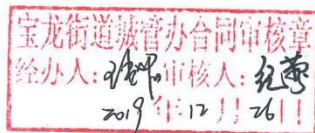 宝龙街道城管办合同审核章
经办人: 审核人:
2019年12月26日